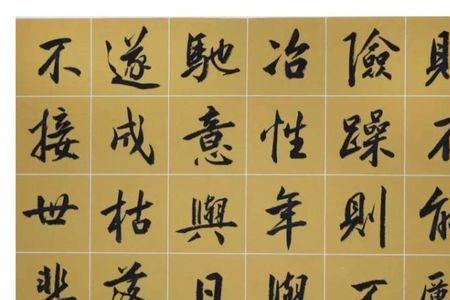 險躁則不
冶性年與
馳意與日
遂成枯落
不接世悲